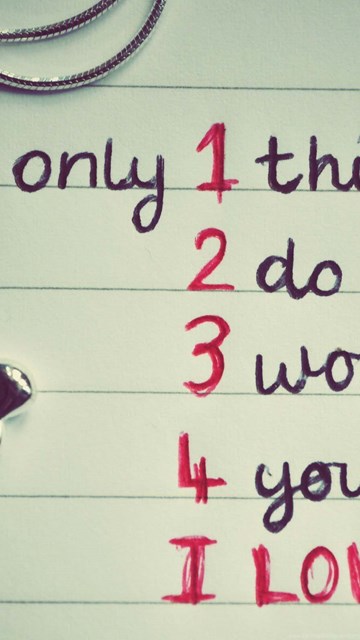 only 1 thi
2 do
3 wo
4 you
I LOV